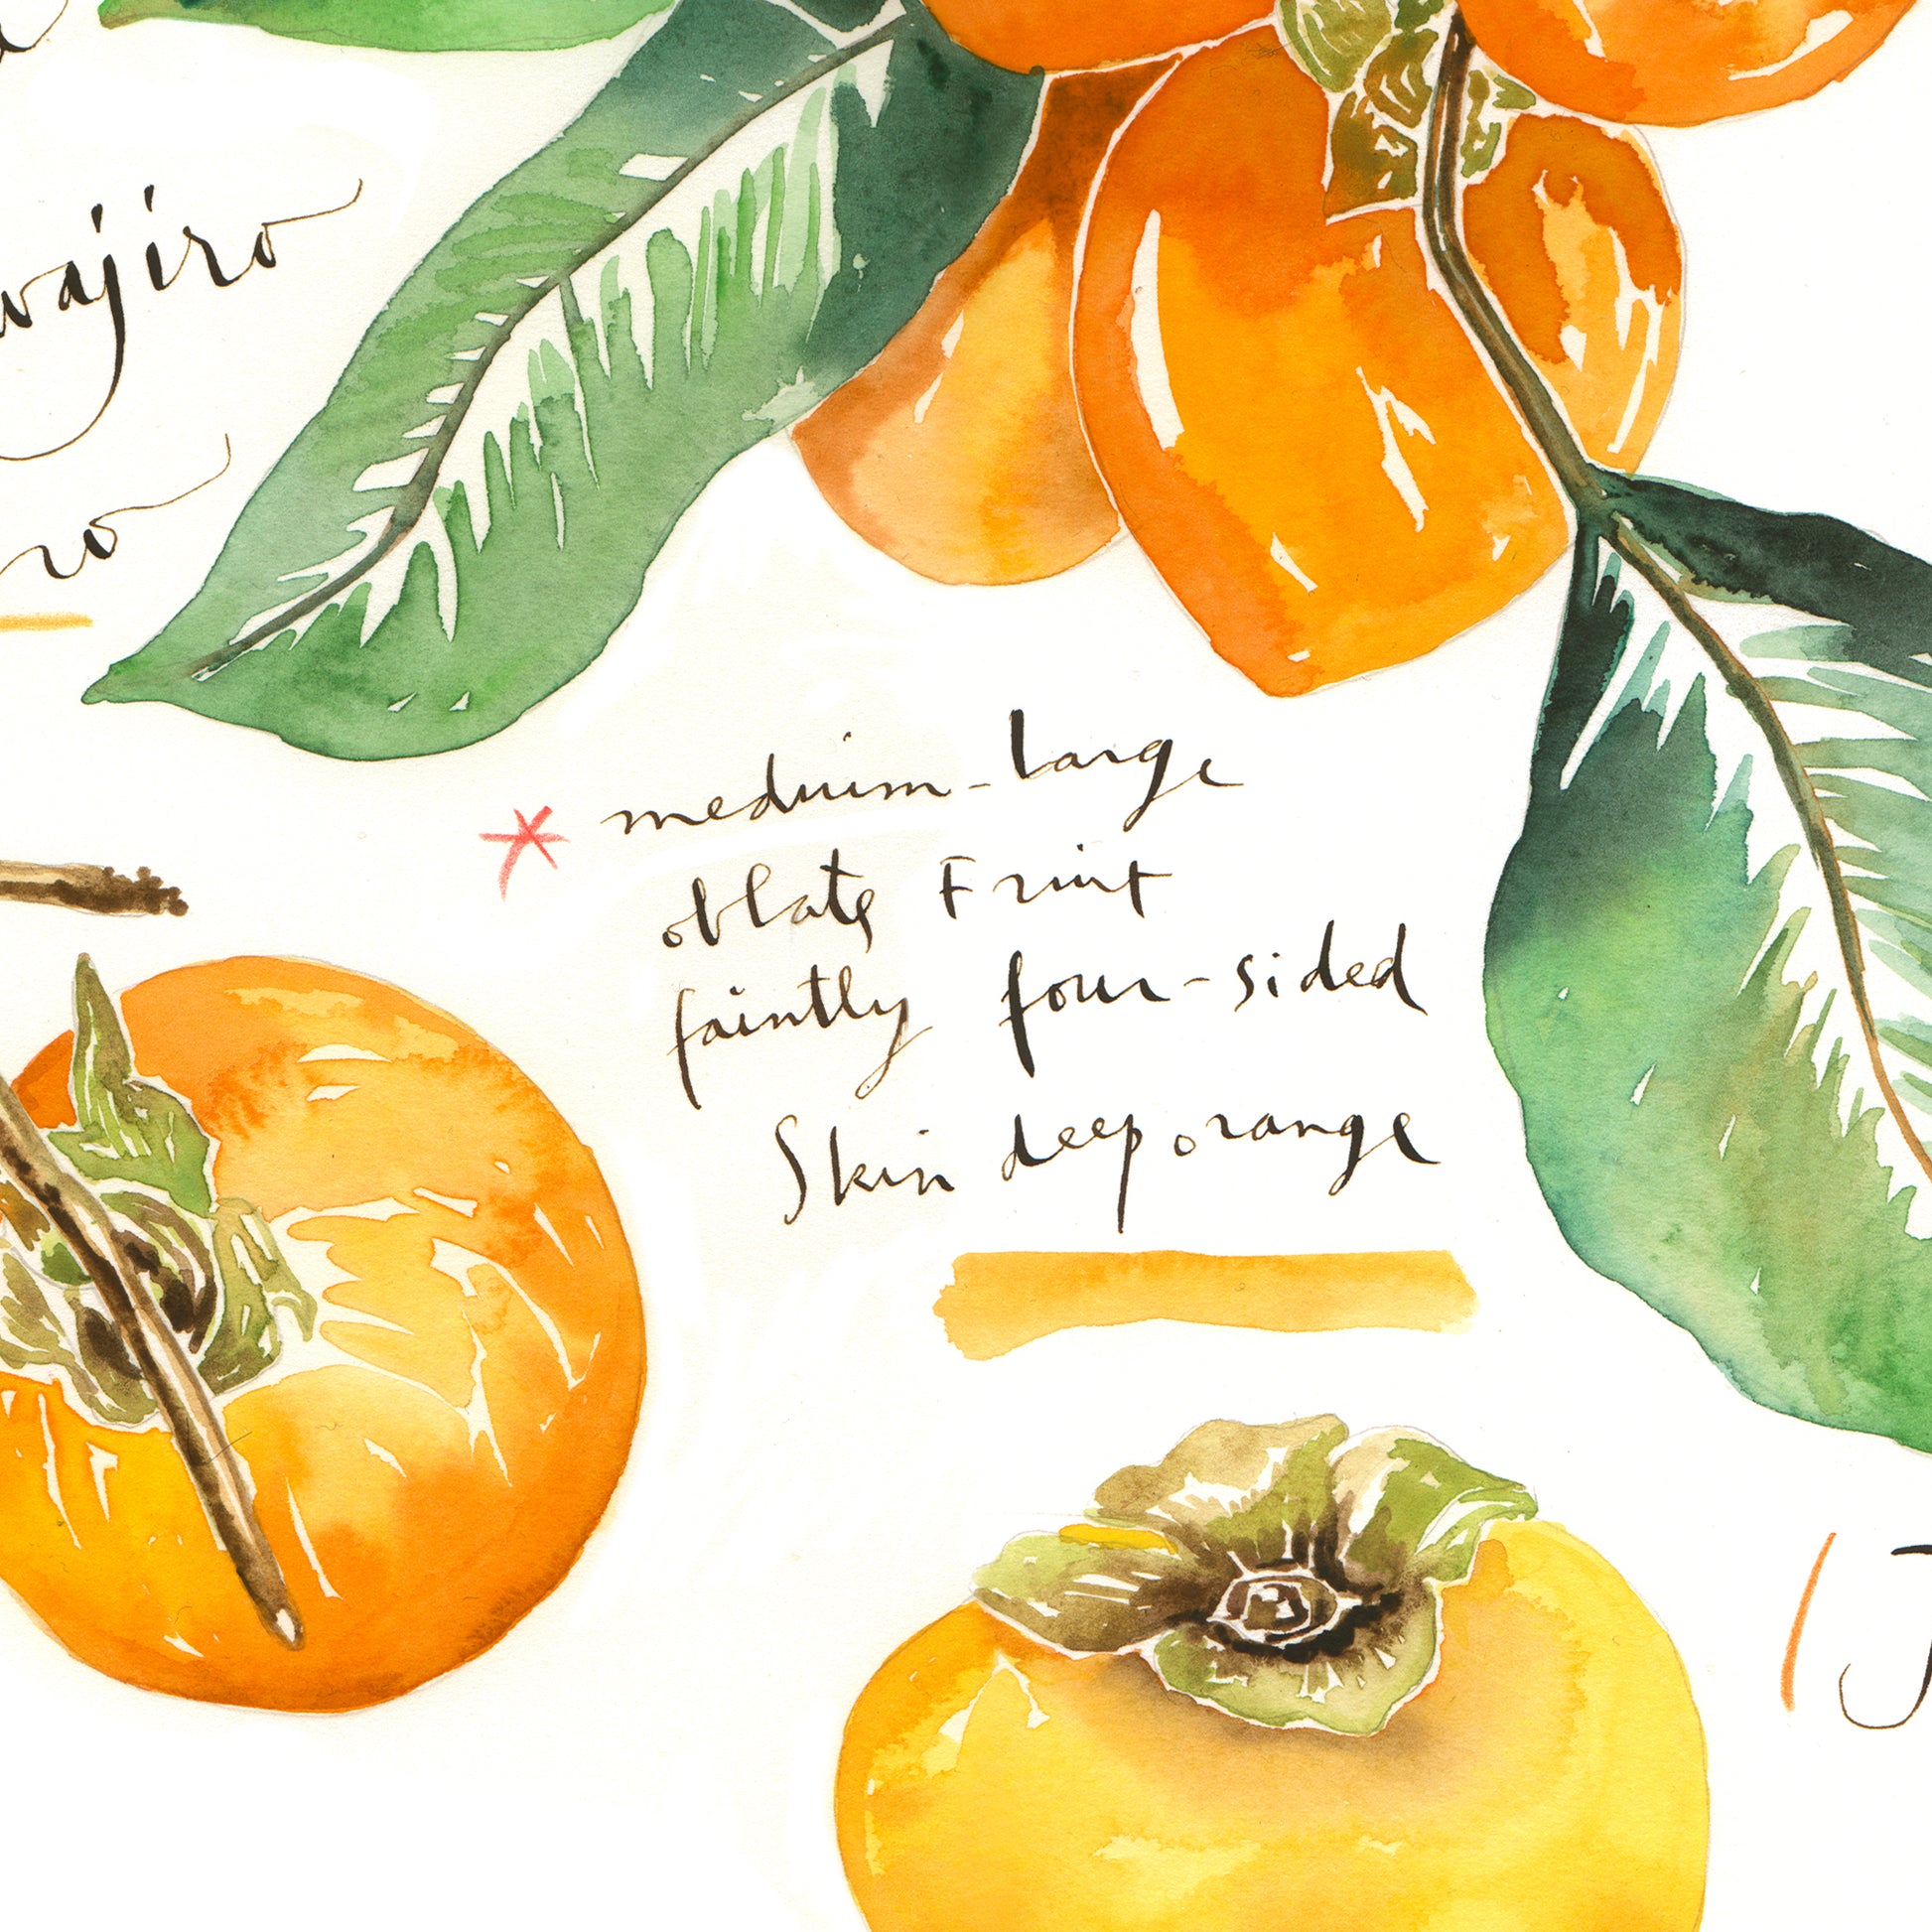 medium-large
oblate Fruit
faintly four-sided
Skin deep orange